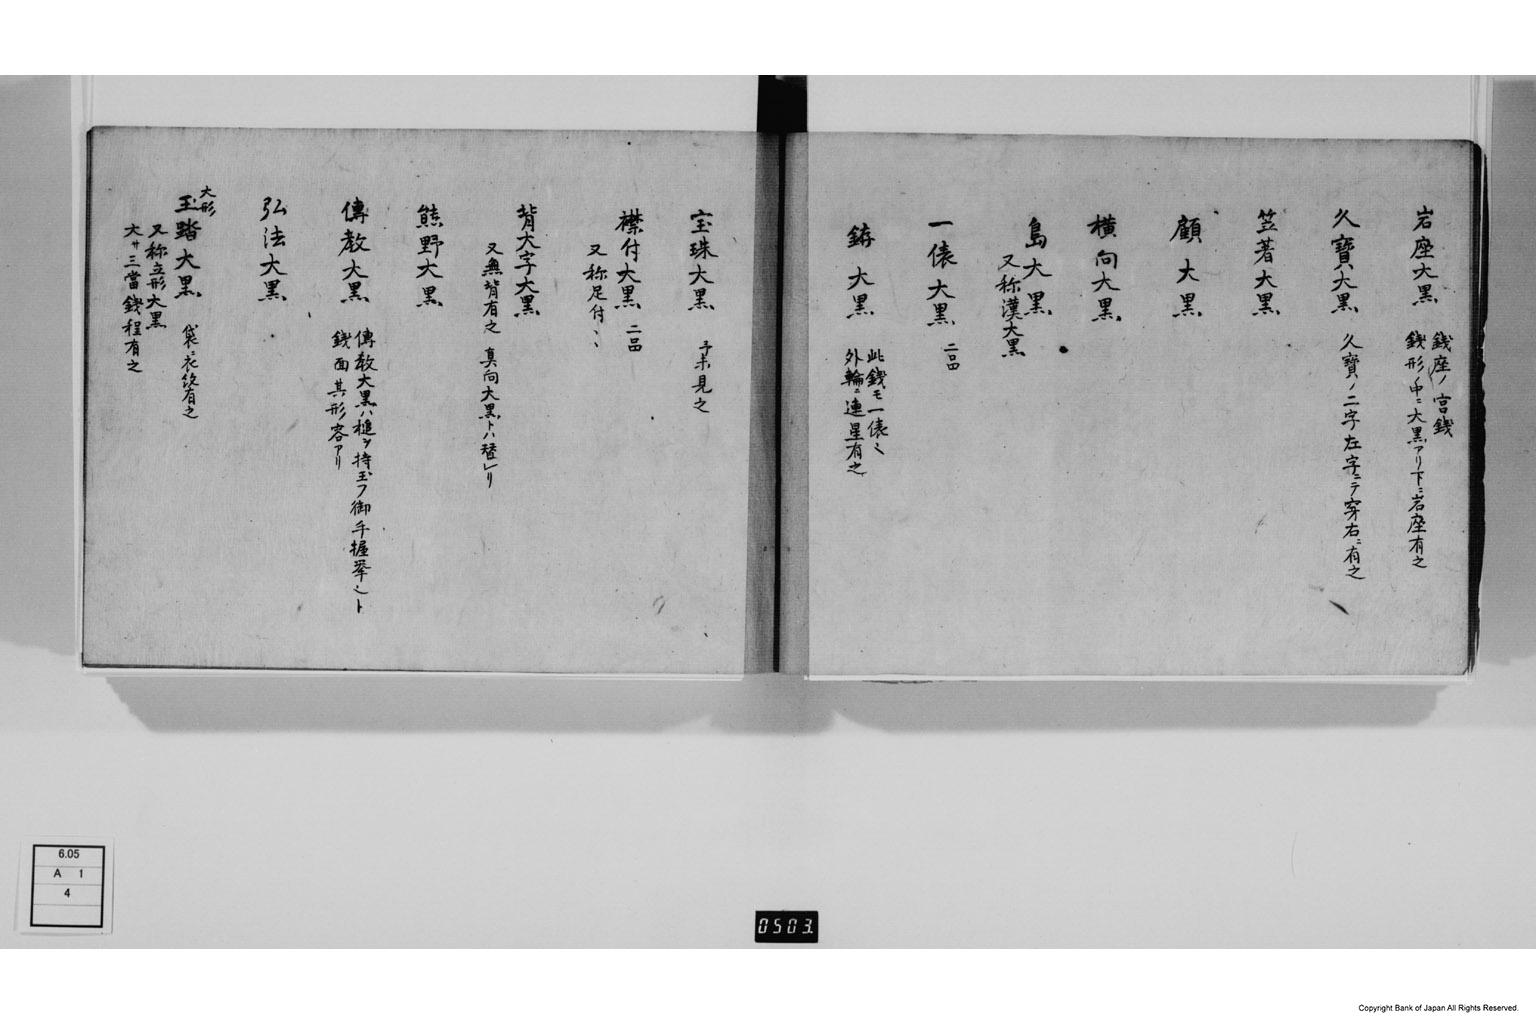 岩座大黒
銭座ノ宮銭
銭形ノ中ニ大黒アリ下ニ岩座有之
久寶大黒
久寶ノ二字左字ニテ穿右ニ有之
笠著大黒
顧大黒
横向大黒
島大黒
又称漢大黒
一俵大黒 二品
大黒
此銭モ一俵
外輪ニ連星有之
宝珠大黒
予未見之
襟付大黒 二品
又称足付
背大字大黒
又無背有之 真向大黒トハ替レリ
熊野大黒
傳教大黒
傳教大黒ハ槌ヲ持玉フ御手握拳
銭面其形容アリ
弘法大黒
大形
玉踏大黒
袋ニ衣紋有之
又称立形大黒
大サ三當銭程有之
6.05
A 1
4
0503.
Copyright Bank of Japan All Rights Reserved.